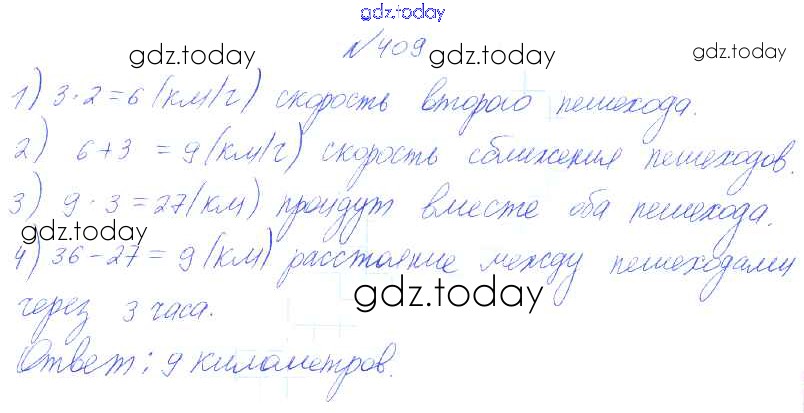 gdz.today
gdz.today № 409 gdz.today
1) 3 · 2 = 6 (км/ч) скорость второго пешехода.
2) 6 + 3 = 9 (км/ч) скорость сближения пешеходов.
gdz.today
3) 9 · 3 = 27 (км) пройдут вместе оба пешехода.
gdz.today
4) 36 - 27 = 9 (км) расстояние между пешеходами
через 3 часа.
gdz.today
Ответ: 9 километров.